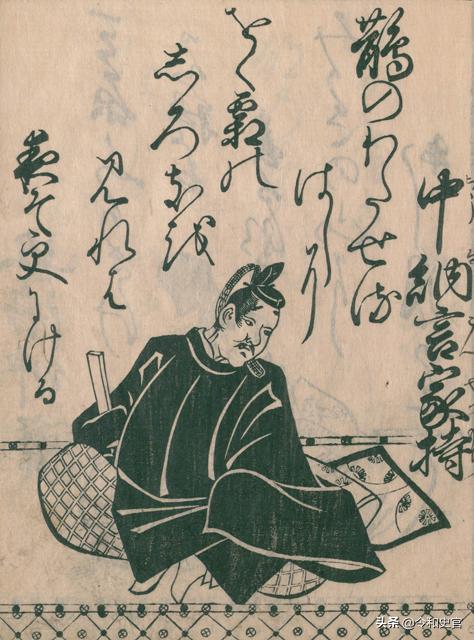 中納言家持
鵲のわたせる
はしに
をく霜の
しろきを
見れは
夜そ更にける
头条 @今和史官